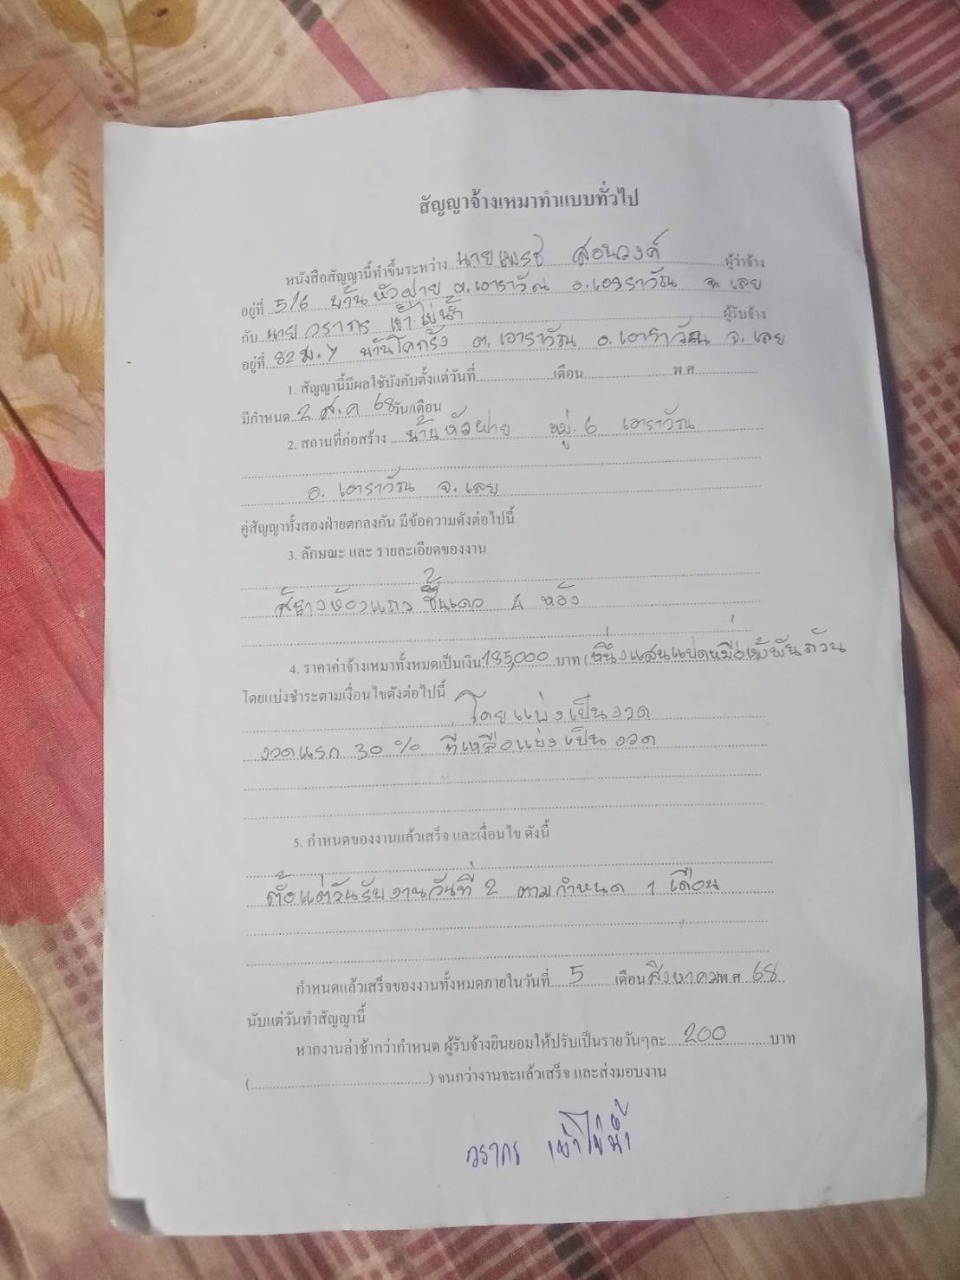 สัญญาจ้างเหมาทำแบบทั่วไป
หนังสือสัญญานี้ทำขึ้นระหว่าง นาย สอนวงค์ ผู้ว่าจ้าง
อยู่ที่ 5/6 บ้านหัวฝาย ต.เอราวัณ อ.เอราวัณ จ.เลย
กับ นายวรากร ผู้รับจ้าง
อยู่ที่ 82 ม.7 ต.เอราวัณ อ.เอราวัณ จ.เลย
1. สัญญานี้มีผลใช้บังคับตั้งแต่วันที่ เดือน พ.ศ
มีกำหนด 2 ส.ค 68 วัน/เดือน
2. สถานที่ก่อสร้าง บ้านหัวฝาย หมู่.6 เอราวัณ
อ. เอราวัณ จ.เลย
คู่สัญญาทั้งสองฝ่ายตกลงกัน มีข้อความดังต่อไปนี้
3. ลักษณะ และ รายละเอียดของงาน
ห้องแถว ห้อง
4. ราคาค่าจ้างเหมาทั้งหมดเป็นเงิน 185,000 บาท (หนึ่งแสนแปดหมื่อห้าพันถ้วน
โดยแบ่งชำระตามเงื่อนไขดังต่อไปนี้
โดยแบ่งเป็นงวด
งวดแรก 30% ที่เหลือแบ่งเป็นงวด
5. กำหนดของงานแล้วเสร็จ และเงื่อนไข ดังนี้
ตั้งแต่วันรับงานวันที่ 2 ตามกำหนด 1 เดือน
กำหนดแล้วเสร็จของงานทั้งหมดภายในวันที่ 5 เดือน สิงหาคม พ.ศ. 68
นับแต่วันทำสัญญานี้
หากงานล่าช้ากว่ากำหนด ผู้รับจ้างยินยอมให้ปรับเป็นรายวันๆละ 200 บาท
( ) จนกว่างานจะแล้วเสร็จ และส่งมอบงาน
วรากร